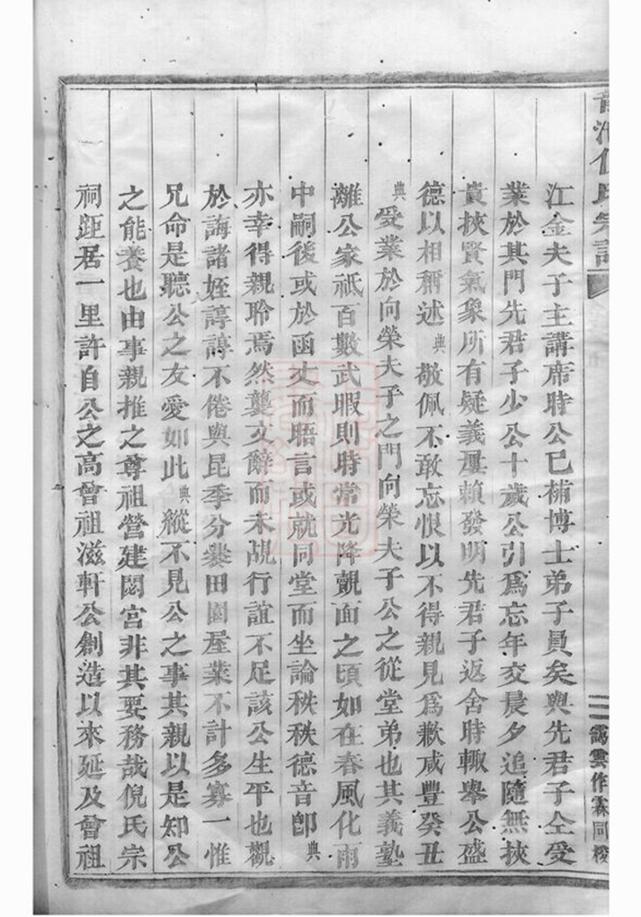 氏宗譜
江金夫子主講席時公已補博士弟子員矣與先君子仝受
業於其門先君子少公十歲公引爲忘年交晨夕追隨無挾
貴挾賢氣象所有疑義屢賴發明先君子返舍時輒舉公盛
德以相稱述典敬佩不敢忘恨以不得親見爲歉咸豐癸丑
典受業於向榮夫子之門向榮夫子公之從堂弟也其義塾
離公家祇百數武暇則時常光降覿面之頃如在春風化雨
中嗣後或於函丈而晤言或就同堂而坐論秩秩德音卽典
亦幸得親聆焉然襲文辭而未覘行誼不足該公生平也觀
於誨諸姪諄諄不倦與昆季分爨田園屋業不計多寡一惟
兄命是聽公之友愛如此典縱不見公之事其親以是知公
之能養也由事親推之尊祖營建閟宮非其要務哉倪氏宗
祠距居一里許自公之高曾祖滋軒公創造以來延及曾祖
二 靄雲作霖同校